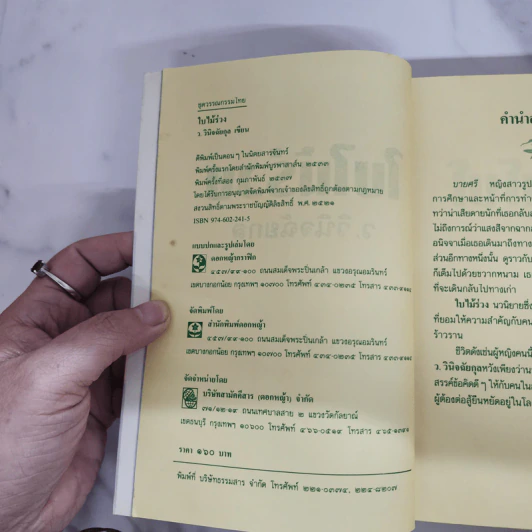 ชุดวรรณกรรมไทย
ใบไม้ร่วง
ว. วินิจฉัยกุล เขียน
ตีพิมพ์เป็นตอนๆ ในนิตยสารจันทร์
พิมพ์ครั้งแรกโดยสำนักพิมพ์บูรพาสาส์น ๒๕๓๓
พิมพ์ครั้งที่สอง กุมภาพันธ์ ๒๕๓๗
โดยได้รับการอนุญาตจัดพิมพ์จากเจ้าของลิขสิทธิ์ถูกต้องตามกฎหมาย
สงวนลิขสิทธิ์ตามพระราชบัญญัติลิขสิทธิ์ พ.ศ. ๒๕๒๑
ISBN 974-602-241-5
แบบปกและรูปเล่มโดย
ดอกหญ้ากราฟิก
๔๕๗/๔๔-๑๐๐ ถนนสมเด็จพระปิ่นเกล้า แขวงอรุณอมรินทร์
เขตบางกอกน้อย กรุงเทพฯ ๑๐๗๐๐ โทรศัพท์ ๔๓๔-๐๒๓๕ โทรสาร
จัดพิมพ์โดย
สำนักพิมพ์ดอกหญ้า
๔๕๗/๔๔-๑๐๐ ถนนสมเด็จพระปิ่นเกล้า แขวงอรุณอมรินทร์
เขตบางกอกน้อย กรุงเทพฯ ๑๐๗๐๐ โทรศัพท์ ๔๓๔-๐๒๓๕ โทรสาร
จัดจำหน่ายโดย
บริษัทสามัคคีสาร (ดอกหญ้า) จำกัด
๗๑/๑๒-๑๙ ถนนเทศบาลสาย ๒ แขวงวัดกัลยาณ์
เขตธนบุรี กรุงเทพฯ ๑๐๖๐๐ โทรศัพท์ ๔๖๖-๐๕๑๙ โทรสาร
ราคา ๑๖๐ บาท
พิมพ์ที่ บริษัทธรรมสาร จำกัด โทรศัพท์ ๒๒๑-๐๓๗๔, ๒๒๔-๘๒๐๗
คำนำ
บายศรี หญิงสาวรูป
การศึกษาและหน้าที่การทำ
ทว่าน่าเสียดายนักที่เธอกลับ
ไม่ถึงการณ์ว่าแสงสีจากฉาก
อนิจจาเมื่อเธอเดินมาถึงทาง
ส่วนอีกทางหนึ่งนั้น ดูราวกับ
ก็เต็มไปด้วยขวากหนาม เธอ
ที่จะเดินกลับไปทางเก่า
ใบไม้ร่วง นวนิยายซึ่ง
ที่ยอมให้ความสำคัญกับคน
ร้าวราน
ชีวิตดังเช่นผู้หญิงคนนี้
ว. วินิจฉัยกุลหวังเพียงว่า
สรรค์ข้อคิดดีๆ ให้กับคนใน
ผู้ต้องต่อสู้ยืนหยัดอยู่ในโล